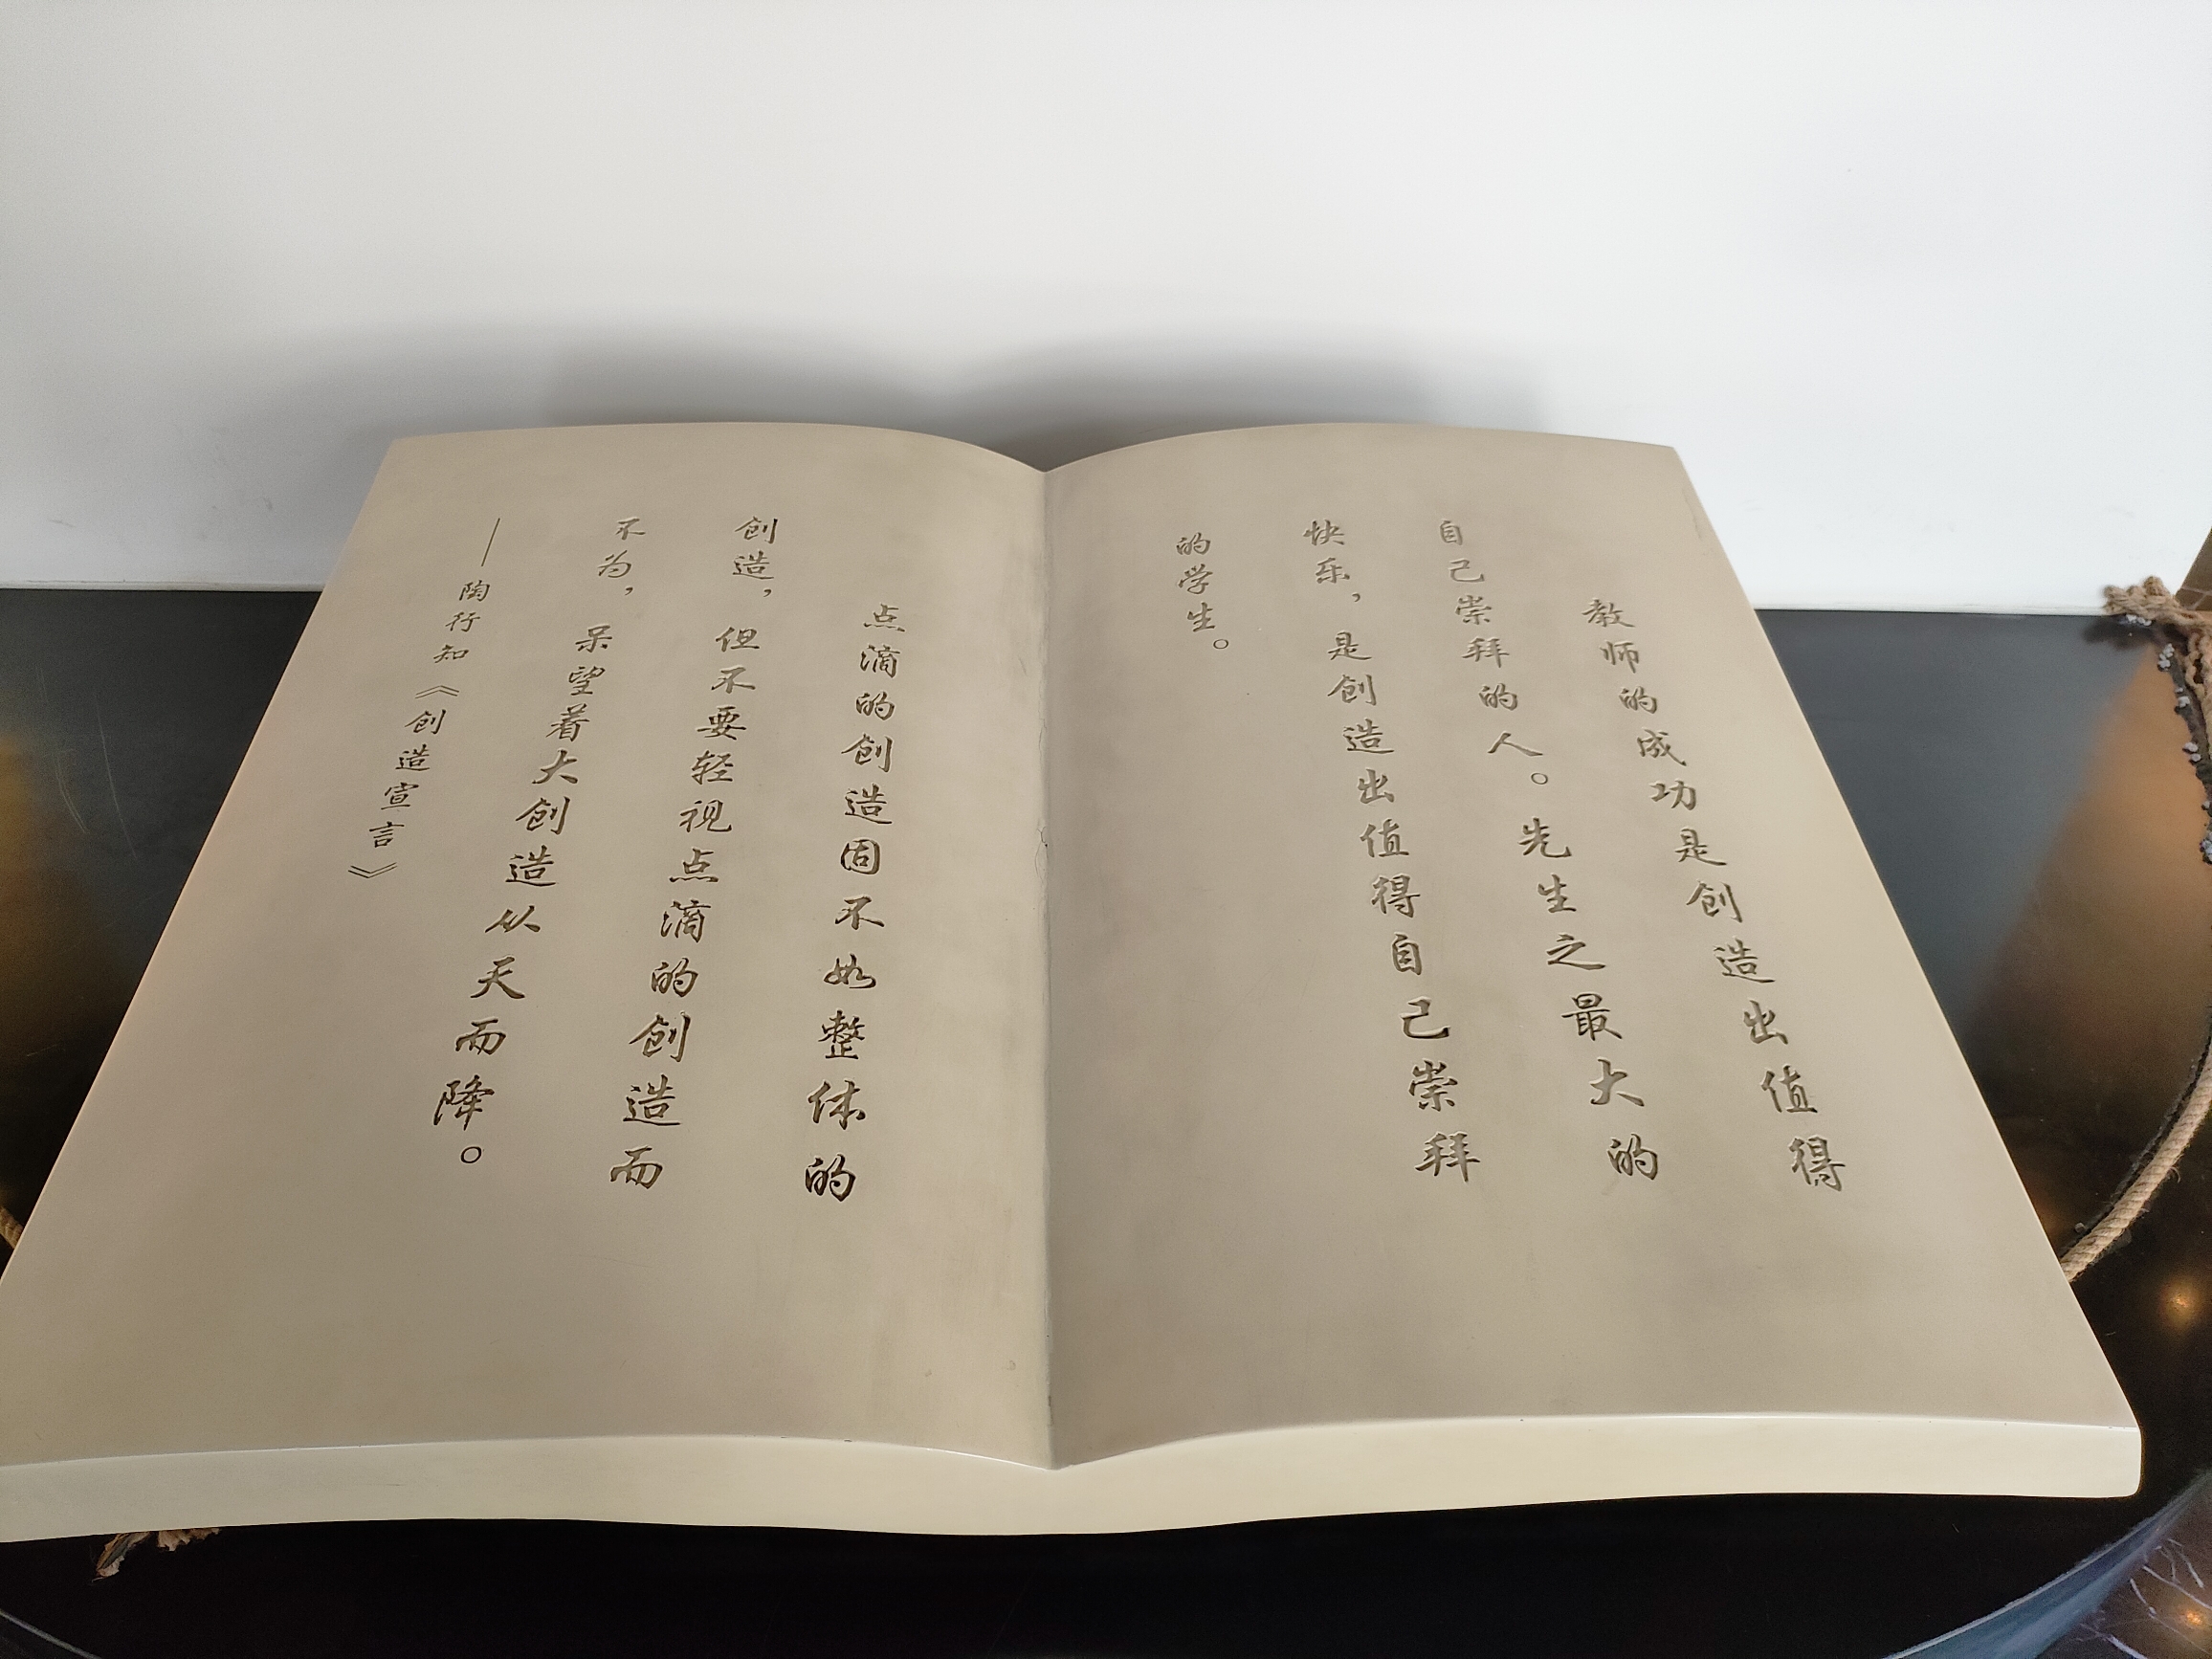 教师的成功是创造出值得
自己崇拜的人。先生之最大的
快乐，是创造出值得自己崇拜
的学生。
点滴的创造固不如整体的
创造，但不要轻视点滴的创造而
不为，呆望着大创造从天而降。
——陶行知《创造宣言》